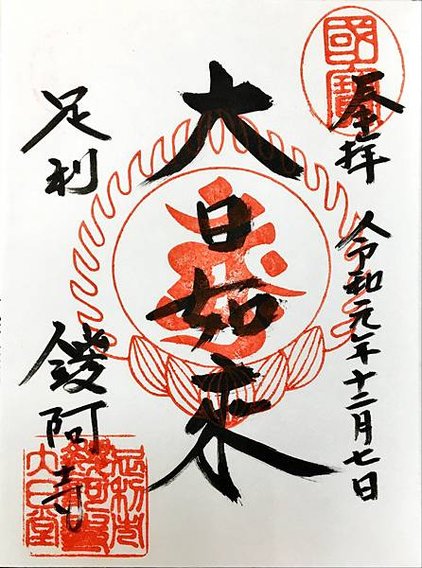 國寶
奉拝
令和元年十二月七日
大日如来
足利
鑁阿寺
足利市
鑁阿寺
大日堂